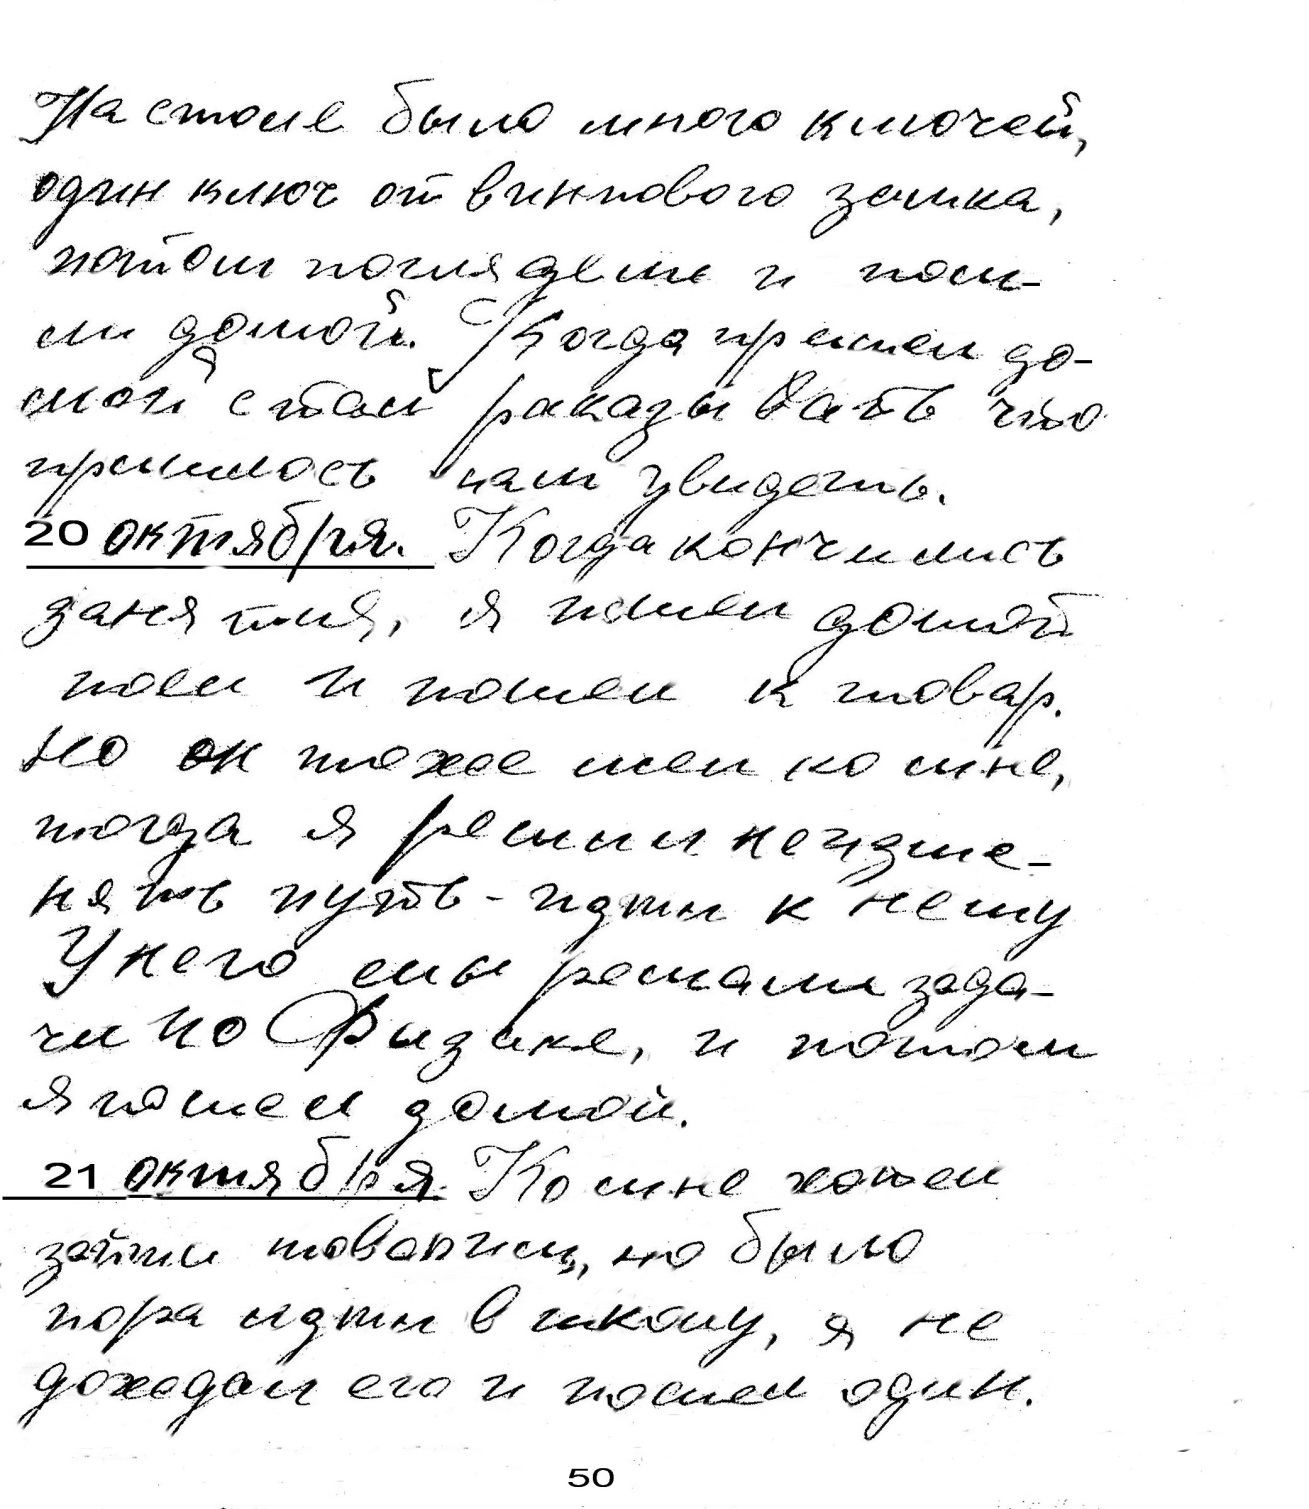 На столе было много ключей,
один ключ от винтового замка,
потом поглядели и пош-
ли домой. Когда пришел до-
мой стал расказывать что
пришлось нам увидеть.
20 октября. Когда кончились
занятия, я пошел домой
поел и пошел к товар.
но он тоже шел ко мне,
тогда я решил не изме-
нять путь - идти к нему
У него мы решали зада-
чи по Физике, и потом
я пошел домой.
21 октября. Ко мне хотел
зайти товарищ, но было
пора идти в школу, я не
дождал его и пошел один.
50